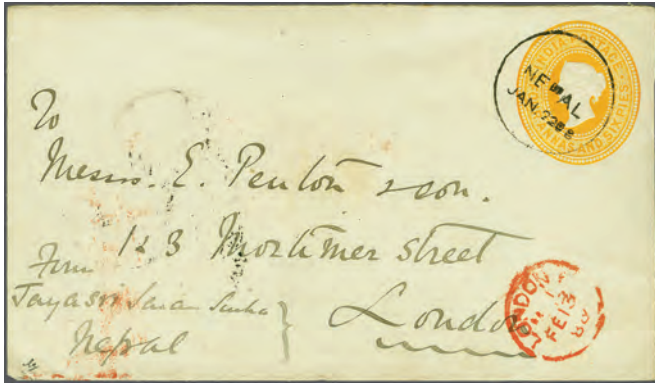 INDIA POSTAGE
ANNAS AND SIX PIES
NEPAL
JAN. 22 88
To
Messrs. E. Penton & son.
123 Mortimer street
London
From
Jayasri
Nepal
LONDON
FE 13
88